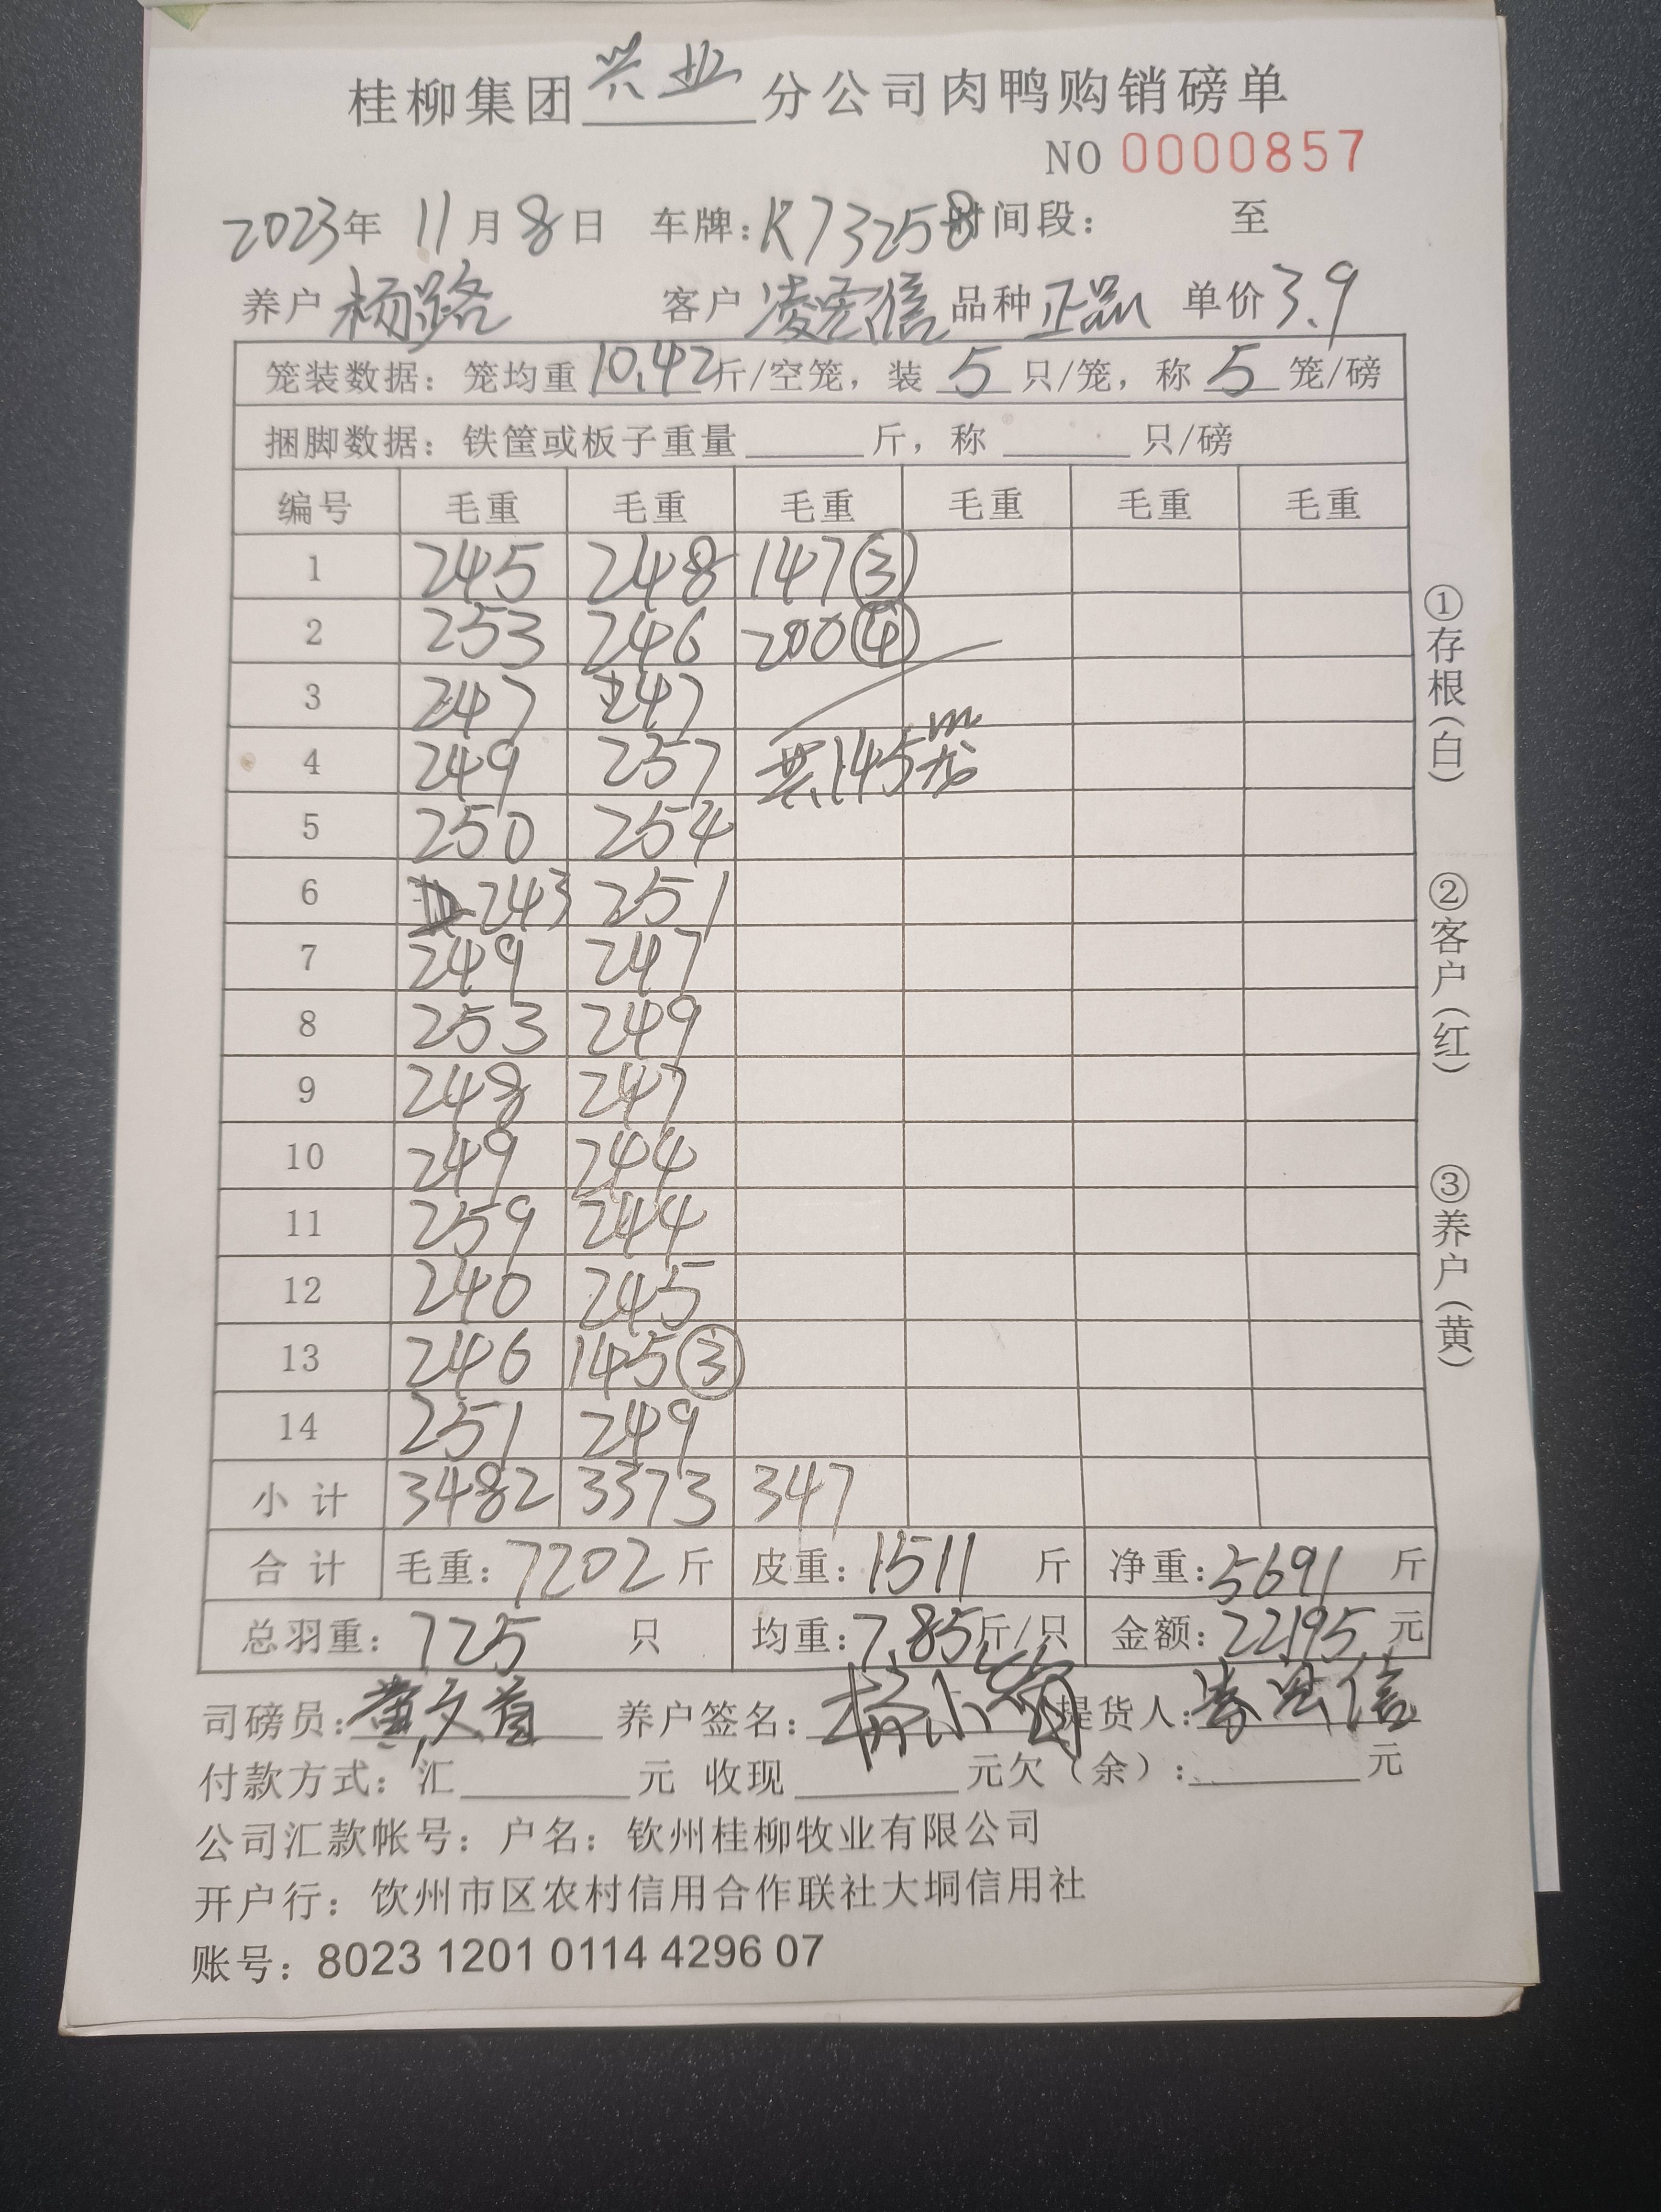 桂柳集团兴业分公司肉鸭购销磅单
NO 0000857
2023年 11月8日 车牌:K73258时间段: 至
养户 杨路 客户 凌宏信 品种 正品 单价3.9
笼装数据: 笼均重10.42斤/空笼, 装 5 只/笼, 称 5 笼/磅
捆脚数据: 铁筐或板子重量 斤, 称 只/磅
编号 毛重 毛重 毛重 毛重 毛重 毛重
1 245 248 147③
2 253 246 200④
3 247 247
4 249 257 共145笼
5 250 254
6 243 251
7 249 247
8 253 249
9 248 247
10 249 244
11 259 244
12 240 245
13 246 145③
14 251 249
小计 3482 3373 347
合计 毛重: 7202 斤 皮重: 1511 斤 净重: 5691 斤
总羽重: 725 只 均重: 7.85斤/只 金额: 22195 元
司磅员: 黄文首 养户签名: 提货人: 凌宏信
付款方式: 汇 元 收现 元欠(余): 元
公司汇款帐号: 户名: 钦州桂柳牧业有限公司
开户行: 饮州市区农村信用合作联社大垌信用社
账号: 8023 1201 0114 4296 07
①存根(白)
②客户(红)
③养户(黄)